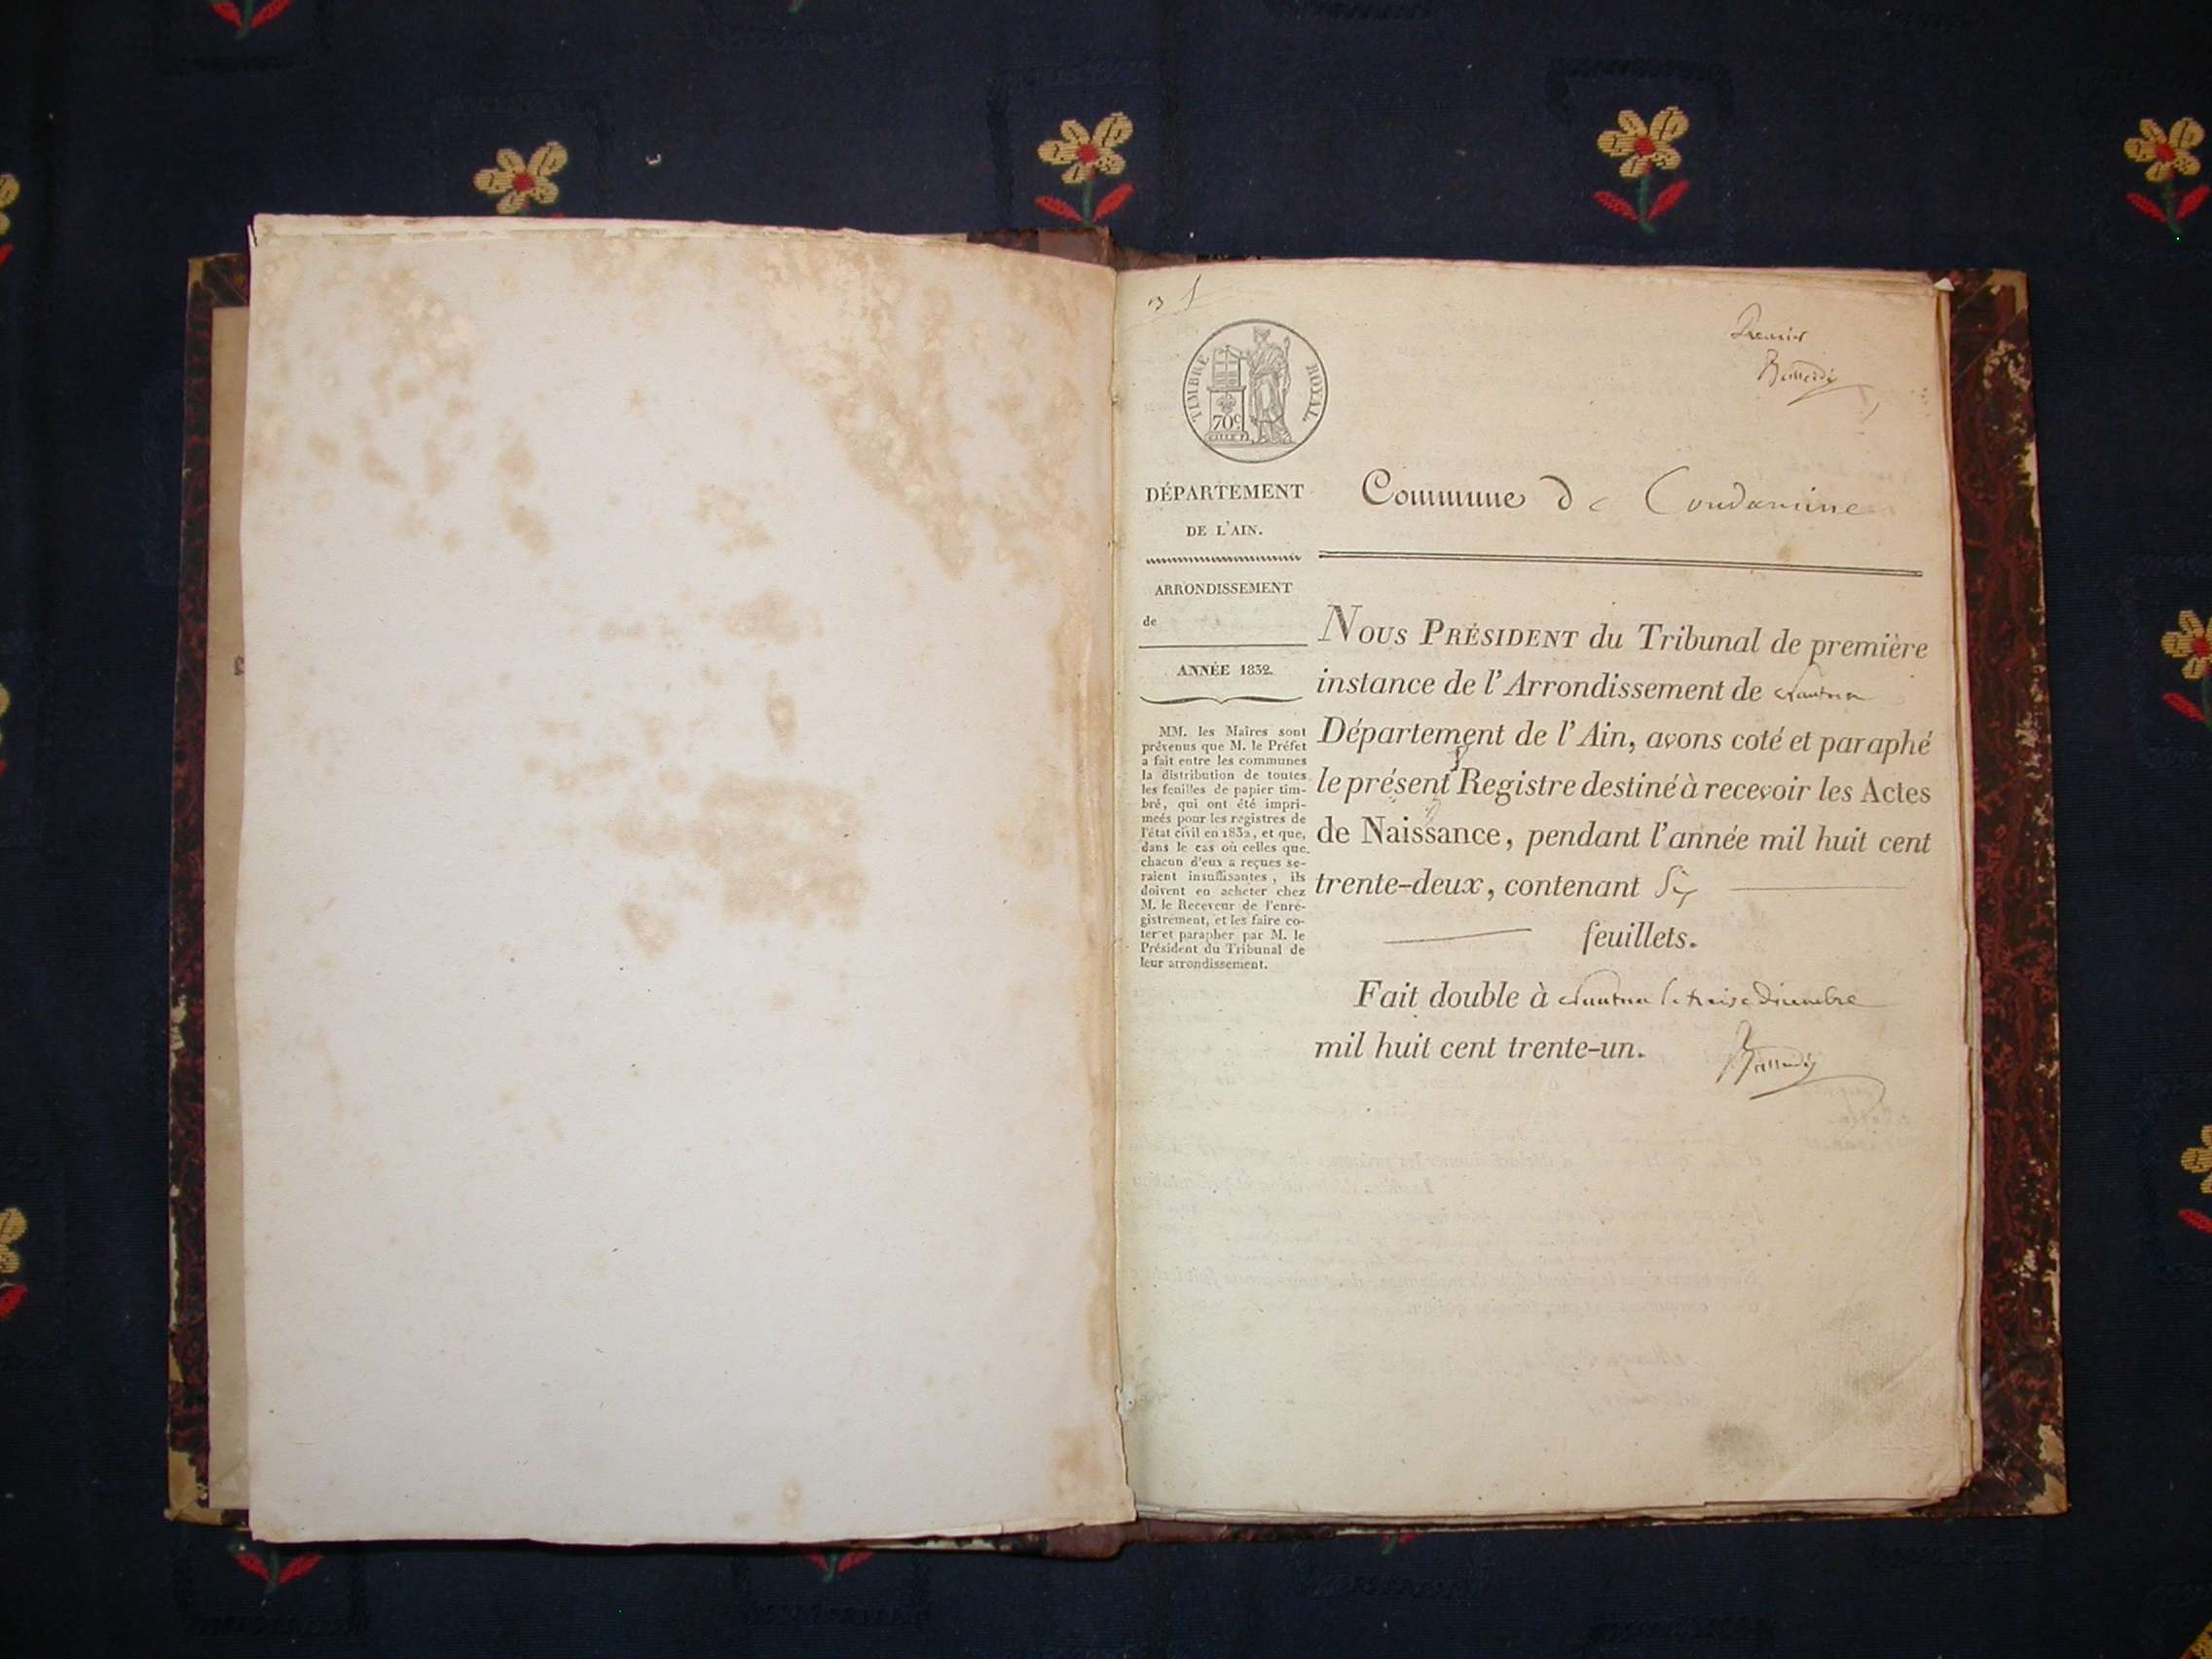 TIMBRE ROYAL
70c
Premier
DÉPARTEMENT
DE L'AIN.
ARRONDISSEMENT
de
ANNÉE 1832.
MM. les Maires sont
prévenus que M. le Préfet
a fait entre les communes
la distribution de toutes
les feuilles de papier tim-
bré, qui ont été impri-
meés pour les registres de
l'état civil en 1832, et que,
dans le cas où celles que
chacun d'eux a reçues se-
raient insuffisantes, ils
doivent en acheter chez
M. le Receveur de l'enre-
gistrement, et les faire co-
ter et parapher par M. le
Président du Tribunal de
leur arrondissement.
Commune de Condamine
NOUS PRÉSIDENT du Tribunal de première
instance de l'Arrondissement de Nantua
Département de l'Ain, avons coté et paraphé
le présent Registre destiné à recevoir les Actes
de Naissance, pendant l'année mil huit cent
trente-deux, contenant Six
feuillets.
Fait double à Nantua le treize décembre
mil huit cent trente-un.